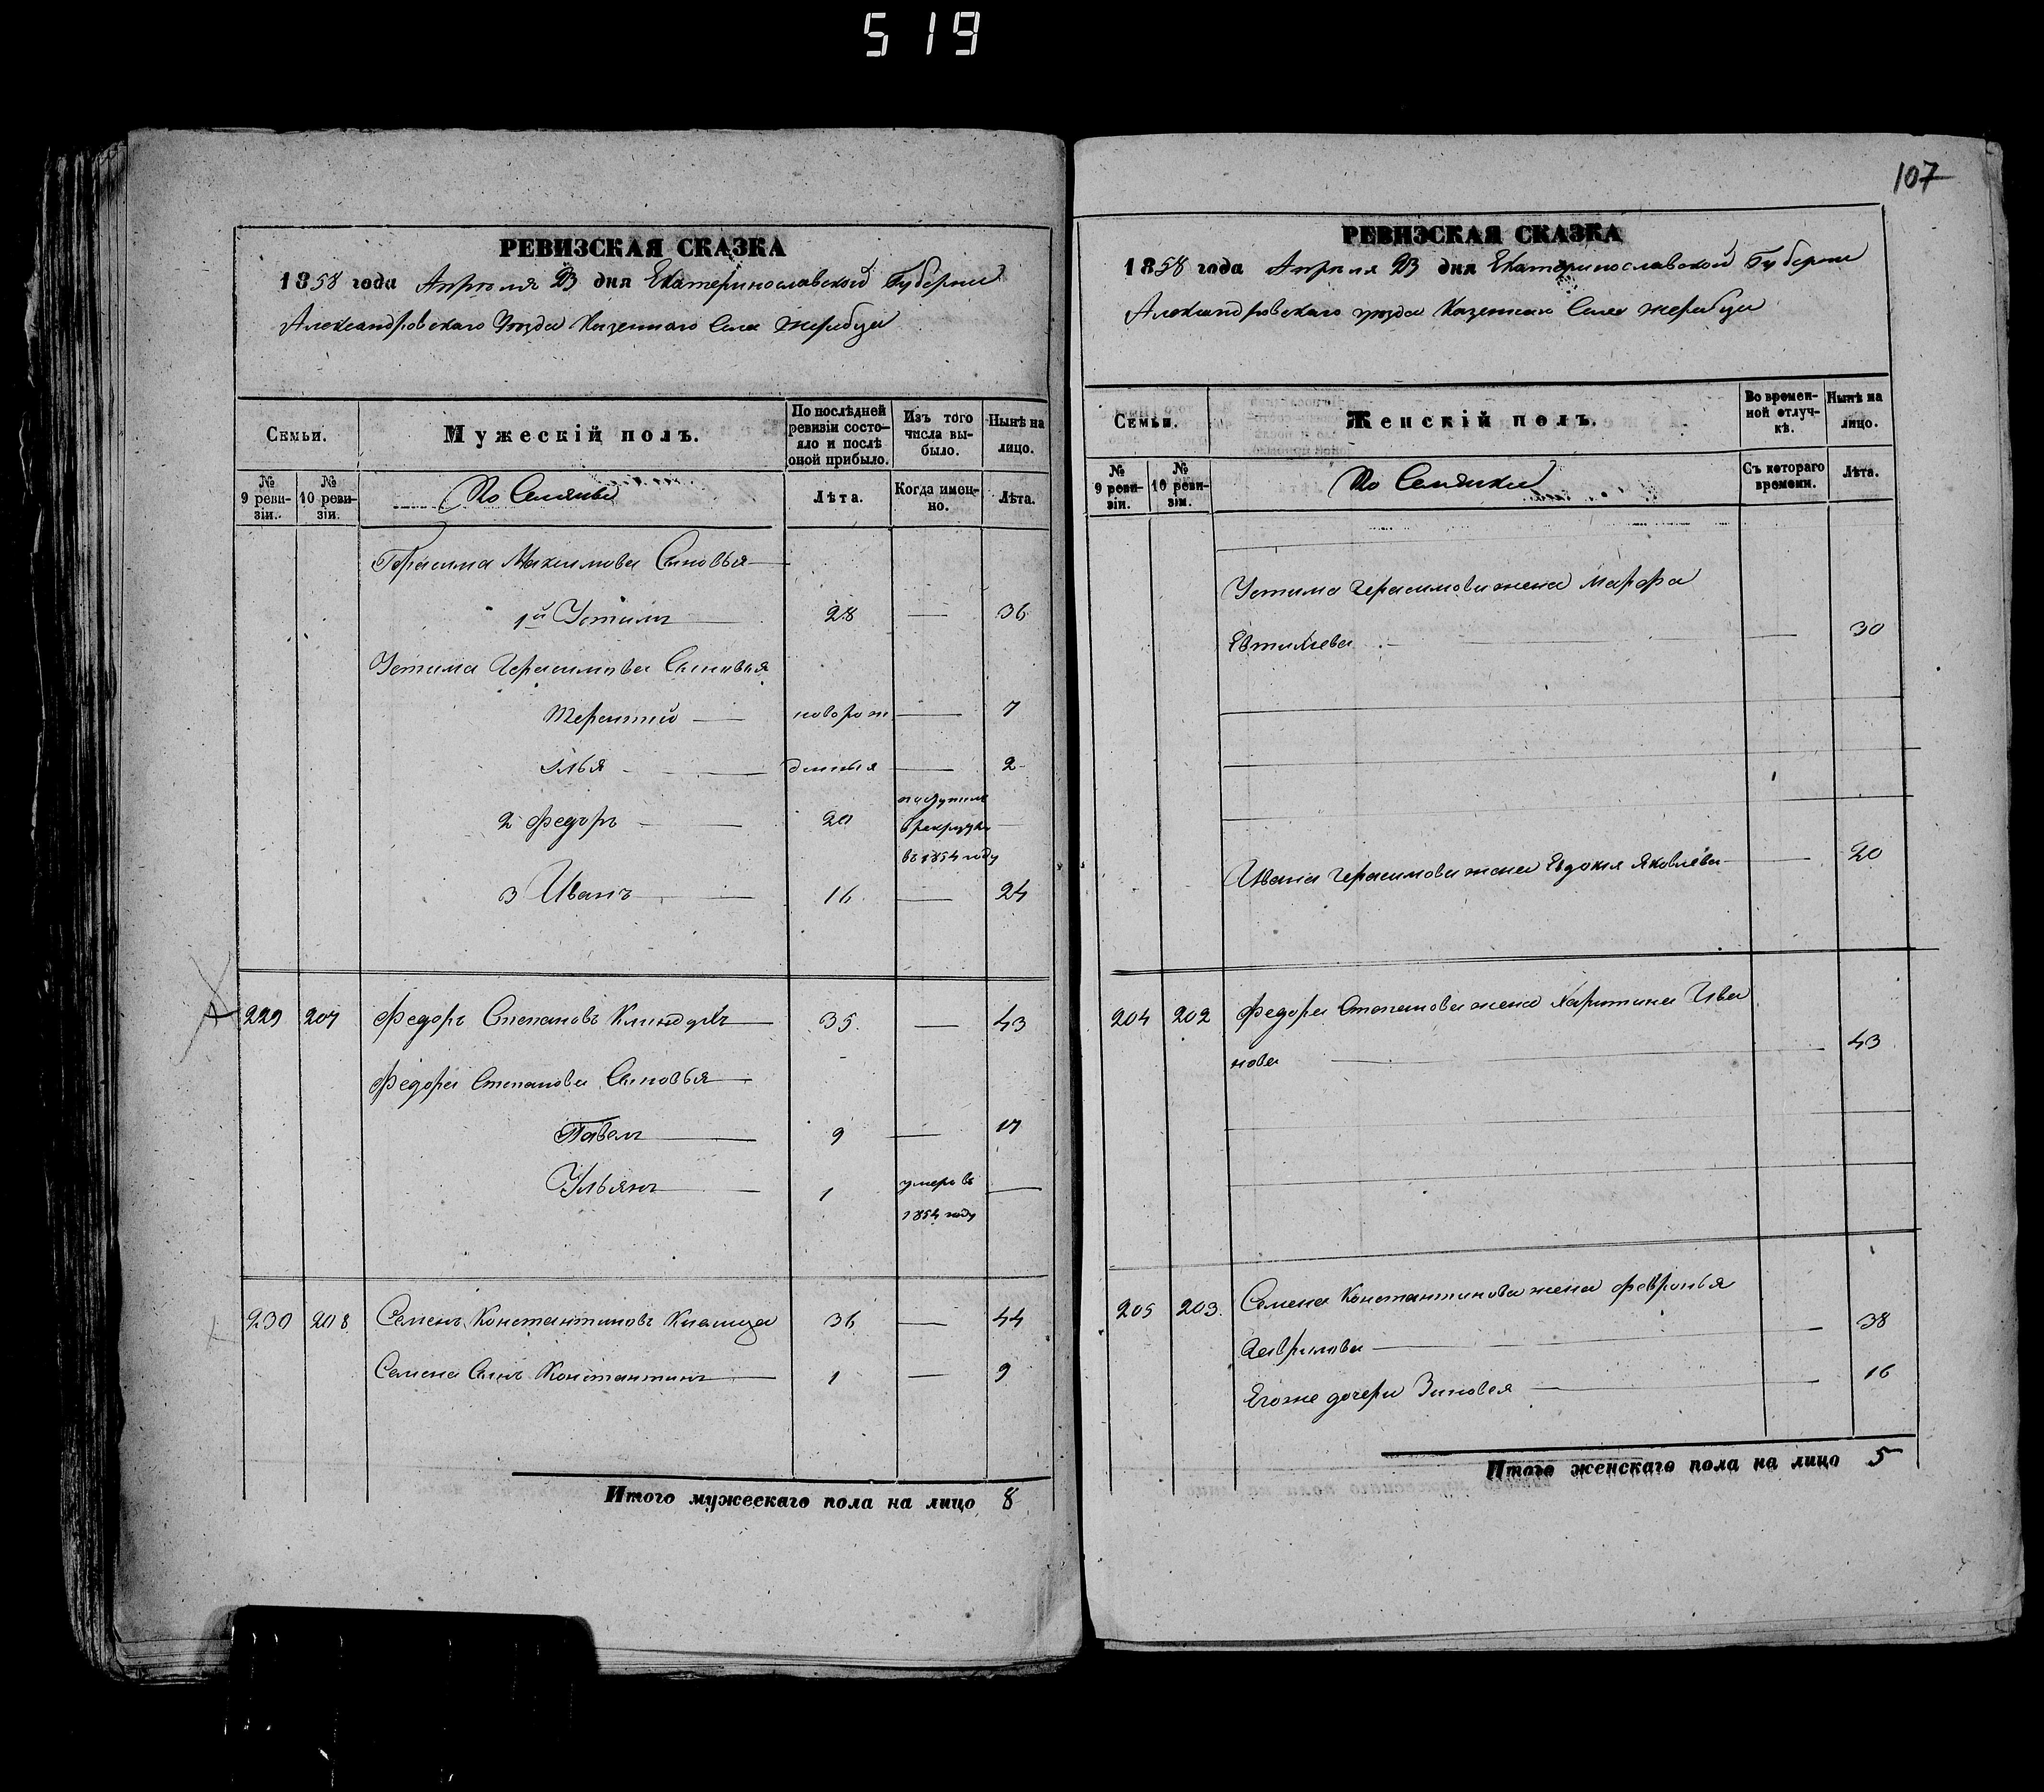 519
РЕВИЗСКАЯ СКАЗКА
1858 года Апреля 23 дня Екатеринославской Губернии
Александровскаго Уезда Казеннаго Села Жеребца
Семьи.
Мужескій полъ.
По послѣдней ревизіи состо-
яло и послѣ
оной прибыло.
Изъ того
числа вы-
было.
Нынѣ на
лицо.
№
9 реви-
зіи.
№
10 реви-
зіи.
Лѣта.
Когда имен-
но.
Лѣта.
Герасима Максимова Сыновья
1й Устимъ 28 — 36
Устима Герасимова Сыновья
Терентий новорож — 7
Илья денныя — 2
2 Федоръ 20 поступилъ
в рекруты
въ 1854 году
3 Иванъ 16 — 24
229 207 Федоръ Степановъ 35 — 43
Федора Степанова Сыновья
Павелъ 9 — 17
Ульянъ 1 умеръ въ —
1854 году
230 208 Семенъ Константиновъ 36 — 44
Семена Сынъ Константинъ 1 — 9
Итого мужескаго пола на лицо 8
107
РЕВИЗСКАЯ СКАЗКА
1858 года Апреля 23 дня Екатеринославской Губернии
Александровскаго уезда Казеннаго Села Жеребца
Семьи.
Женскій полъ.
Во времен-
ной отлуч-
кѣ.
Нынѣ на
лицо.
№
9 реви-
зіи.
№
10 реви-
зіи.
Съ котораго
времени.
Лѣта.
Устима Герасимова жена Марфа
Евтихиева — 30
Ивана Герасимова жена Евдокия Яковлева — 20
204 202 Федора Степанова жена Харитина Ива
нова 43
205 203. Семена Константинова жена Февронья
Гаврилова 38
Егоже дочери Зиновея 16
Итого женскаго пола на лицо 5